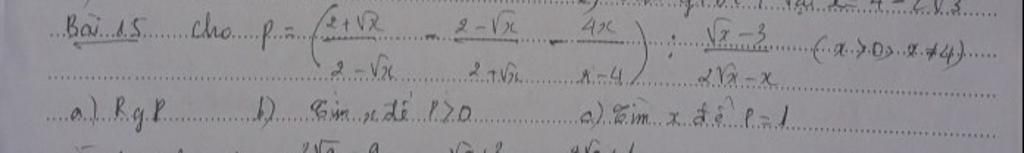 Bài 15 Cho P = (2+√x / 2-√x - 2-√x / 2+√x - 4x / x-4) : √x-3 / 2√x-x (x>0, x≠4)
a) R.g P b) Tìm x để P>0 c) Tìm x để P=1